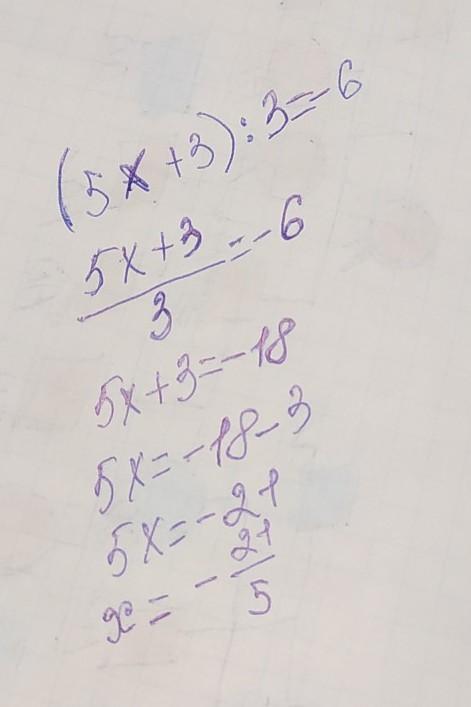 (5x+3):3=-6
5x+3/3=-6
5x+3=-18
5x=-18-3
5x=-21
x=-21/5